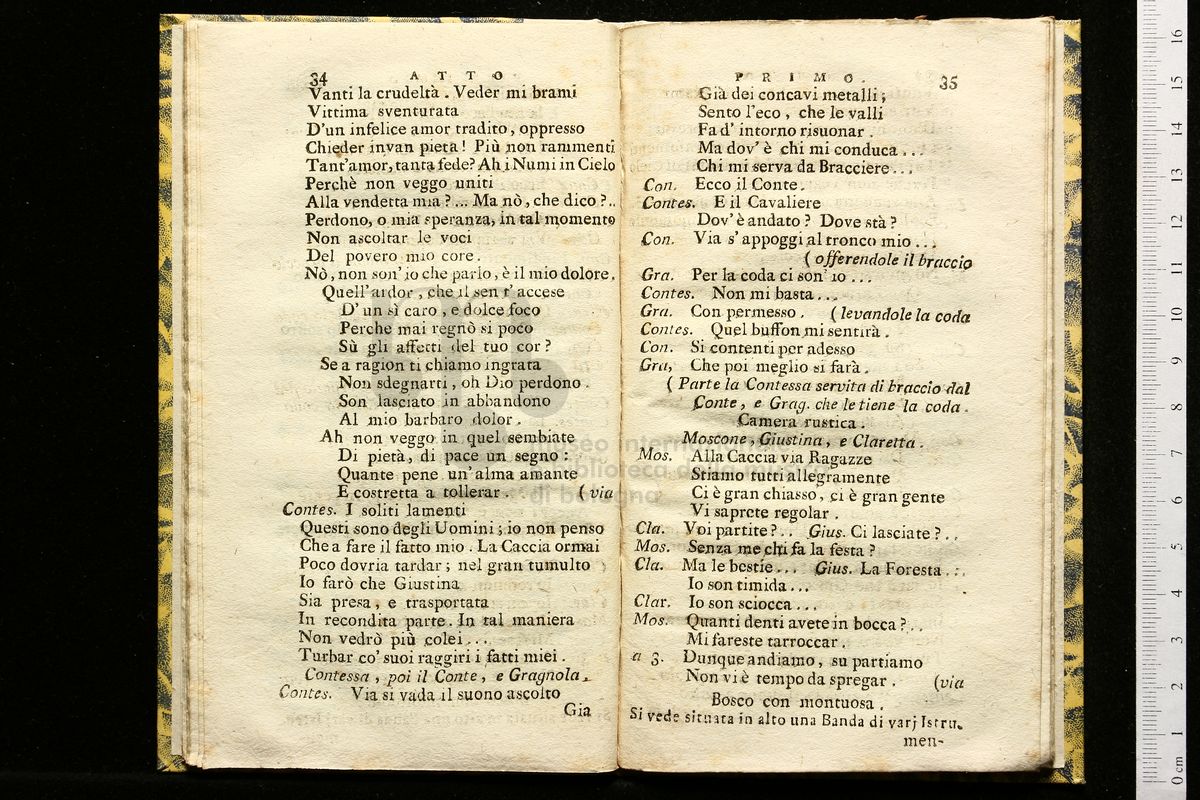 34 ATTO
Vanti la crudeltà. Veder mi brami
Vittima sventurata
D'un infelice amor tradito, oppresso
Chieder invan pieta! Più non rammenti
Tant'amor, tanta fede? Ah i Numi in Cielo
Perchè non veggo uniti
Alla vendetta mia?... Ma nò, che dico?..
Perdono, o mia speranza, in tal momento
Non ascoltar le voci
Del povero mio core.
Nò, non son' io che parlo, è il mio dolore.
Quell'ardor, che il sen t'accese
D'un sì caro, e dolce foco
Perche mai regnò si poco
Sù gli affetti del tuo cor?
Se a ragion ti chiamo ingrata
Non sdegnarti, oh Dio perdono.
Son lasciato in abbandono
Al mio barbaro dolor.
Ah non veggo in quel sembiate
Di pietà, di pace un segno:
Quante pene un'alma amante
E costretta a tollerar. (via
Contes. I soliti lamenti
Questi sono degli Uomini; io non penso
Che a fare il fatto mio. La Caccia ormai
Poco dovria tardar; nel gran tumulto
Io farò che Giustina
Sia presa, e trasportata
In recondita parte. In tal maniera
Non vedrò più colei....
Turbar co' suoi raggiri i fatti miei.
Contessa, poi il Conte, e Gragnola.
Contes. Via si vada il suono ascolto
Gia
PRIMO. 35
Già dei concavi metalli;
Sento l'eco, che le valli
Fa d'intorno risuonar.
Ma dov'è chi mi conduca...
Chi mi serva da Bracciere...
Con. Ecco il Conte.
Contes. E il Cavaliere
Dov'è andato? Dove stà?
Con. Via s'appoggi al tronco mio...
(offerendole il braccio
Gra. Per la coda ci son' io...
Contes. Non mi basta...
Gra. Con permesso. (levandole la coda
Contes. Quel buffon mi sentirà.
Con. Si contenti per adesso
Gra, Che poi meglio si farà.
(Parte la Contessa servita di braccio dal
Conte, e Grag. che le tiene la coda.
Camera rustica.
Moscone, Giustina, e Claretta.
Mos. Alla Caccia via Ragazze
Stiamo tutti allegramente
Ci è gran chiasso, ci è gran gente
Vi saprete regolar.
Cla. Voi partite?.. Gius. Ci lasciate?..
Mos. Senza me chi fa la festa?
Cla. Ma le bestie... Gius. La Foresta...
Io son timida...
Clar. Io son sciocca...
Mos. Quanti denti avete in bocca?..
Mi fareste tarroccar.
a 3. Dunque andiamo, su partiamo
Non vi è tempo da spregar. (via
Bosco con montuosa.
Si vede situata in alto una Banda di varj Istru.
men-
museo internazionale
biblioteca della musica
di bologna
0 cm 1 2 3 4 5 6 7 8 9 10 11 12 13 14 15 16